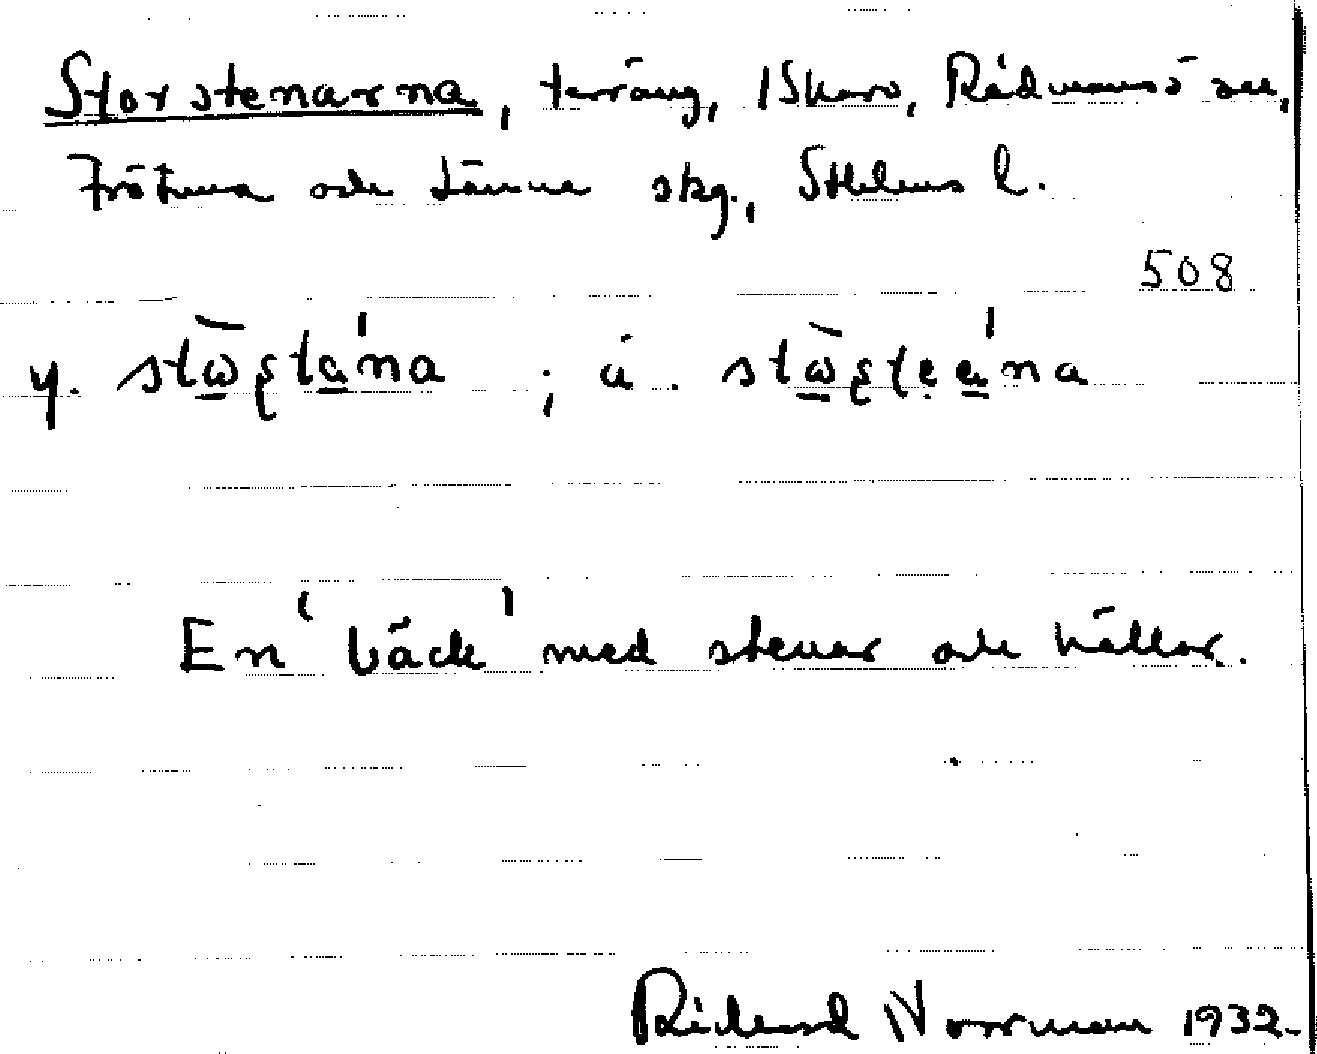 Storstenarna, terräng, Iskaro, Rådmansö sn,
Frötuna och Länna skg., Sthlms l.
508
y. ; ä.
En 'bäck' med stenar och hällar.
Rickard Norrman 1932.